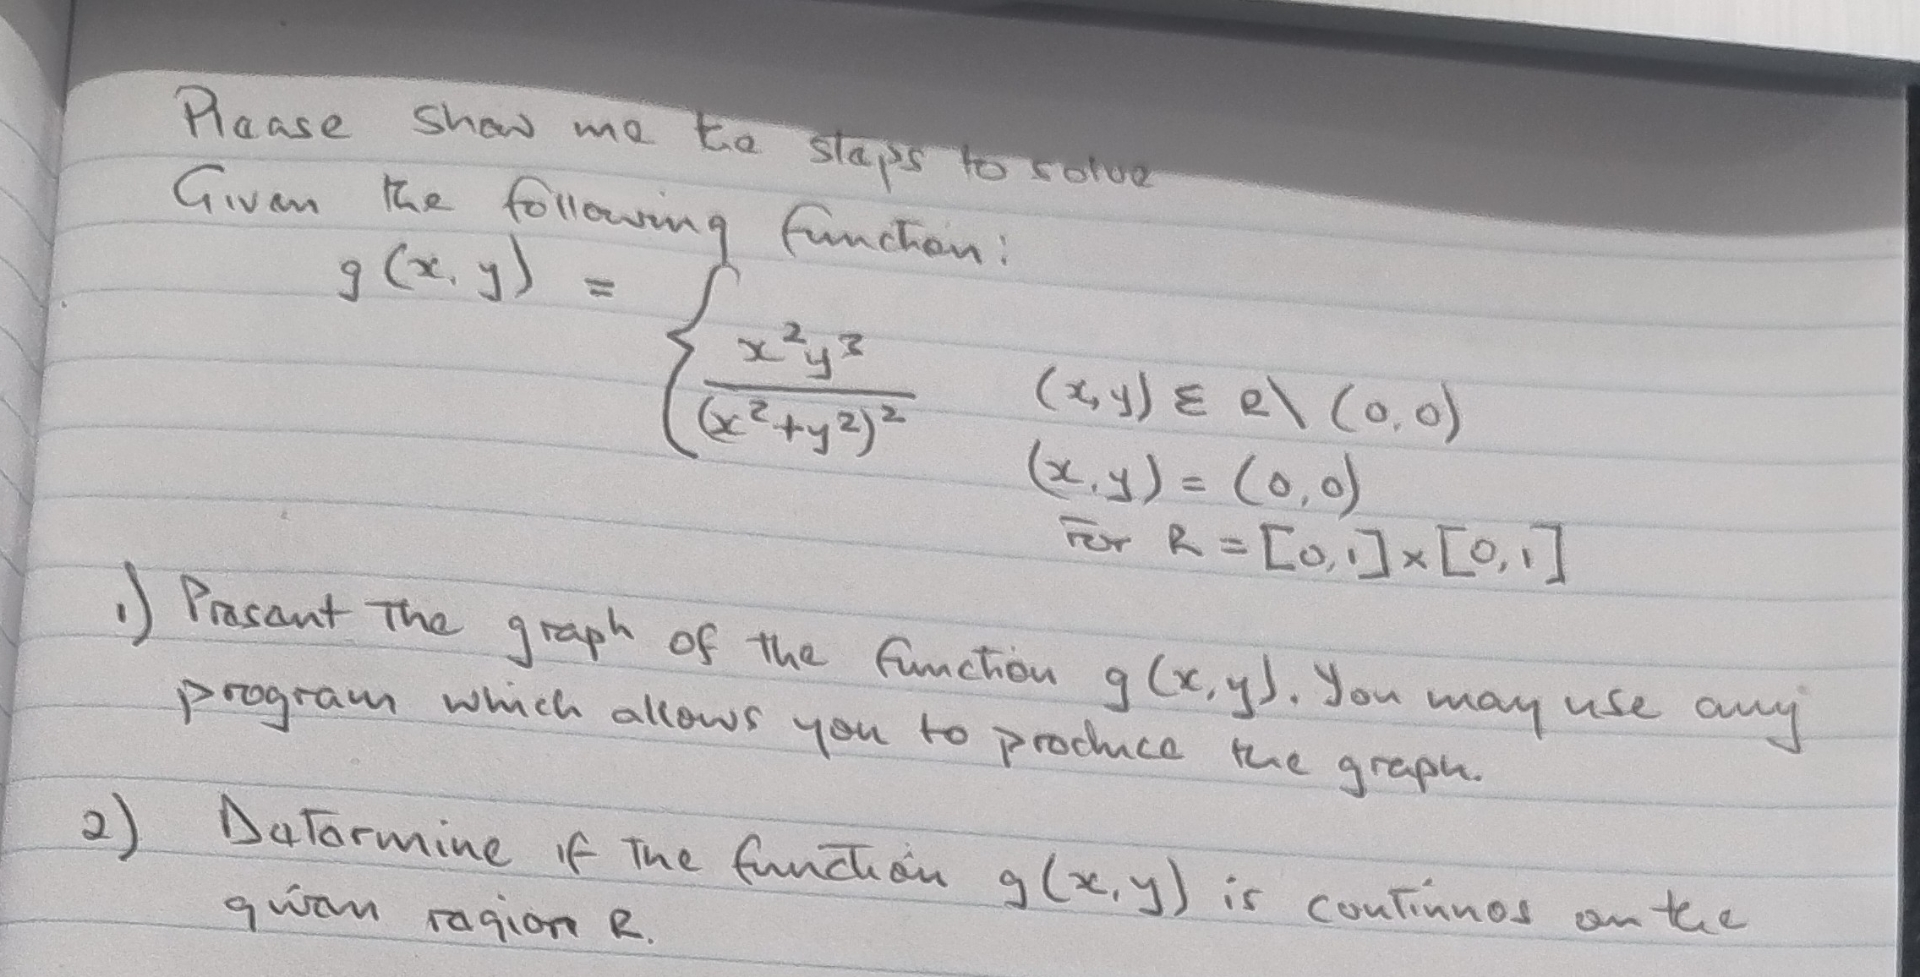 Please show me the steps to solve
Given the following function:
g(x, y) = { x²y³ / (x²+y²)²   (x,y) ∈ R\ (0,0)
(x,y) = (0,0)
For R = [0,1]×[0,1]
1) Present the graph of the function g(x,y). You may use any
program which allows you to produce the graph.
2) Determine if the function g(x,y) is continuos on the
given region R.